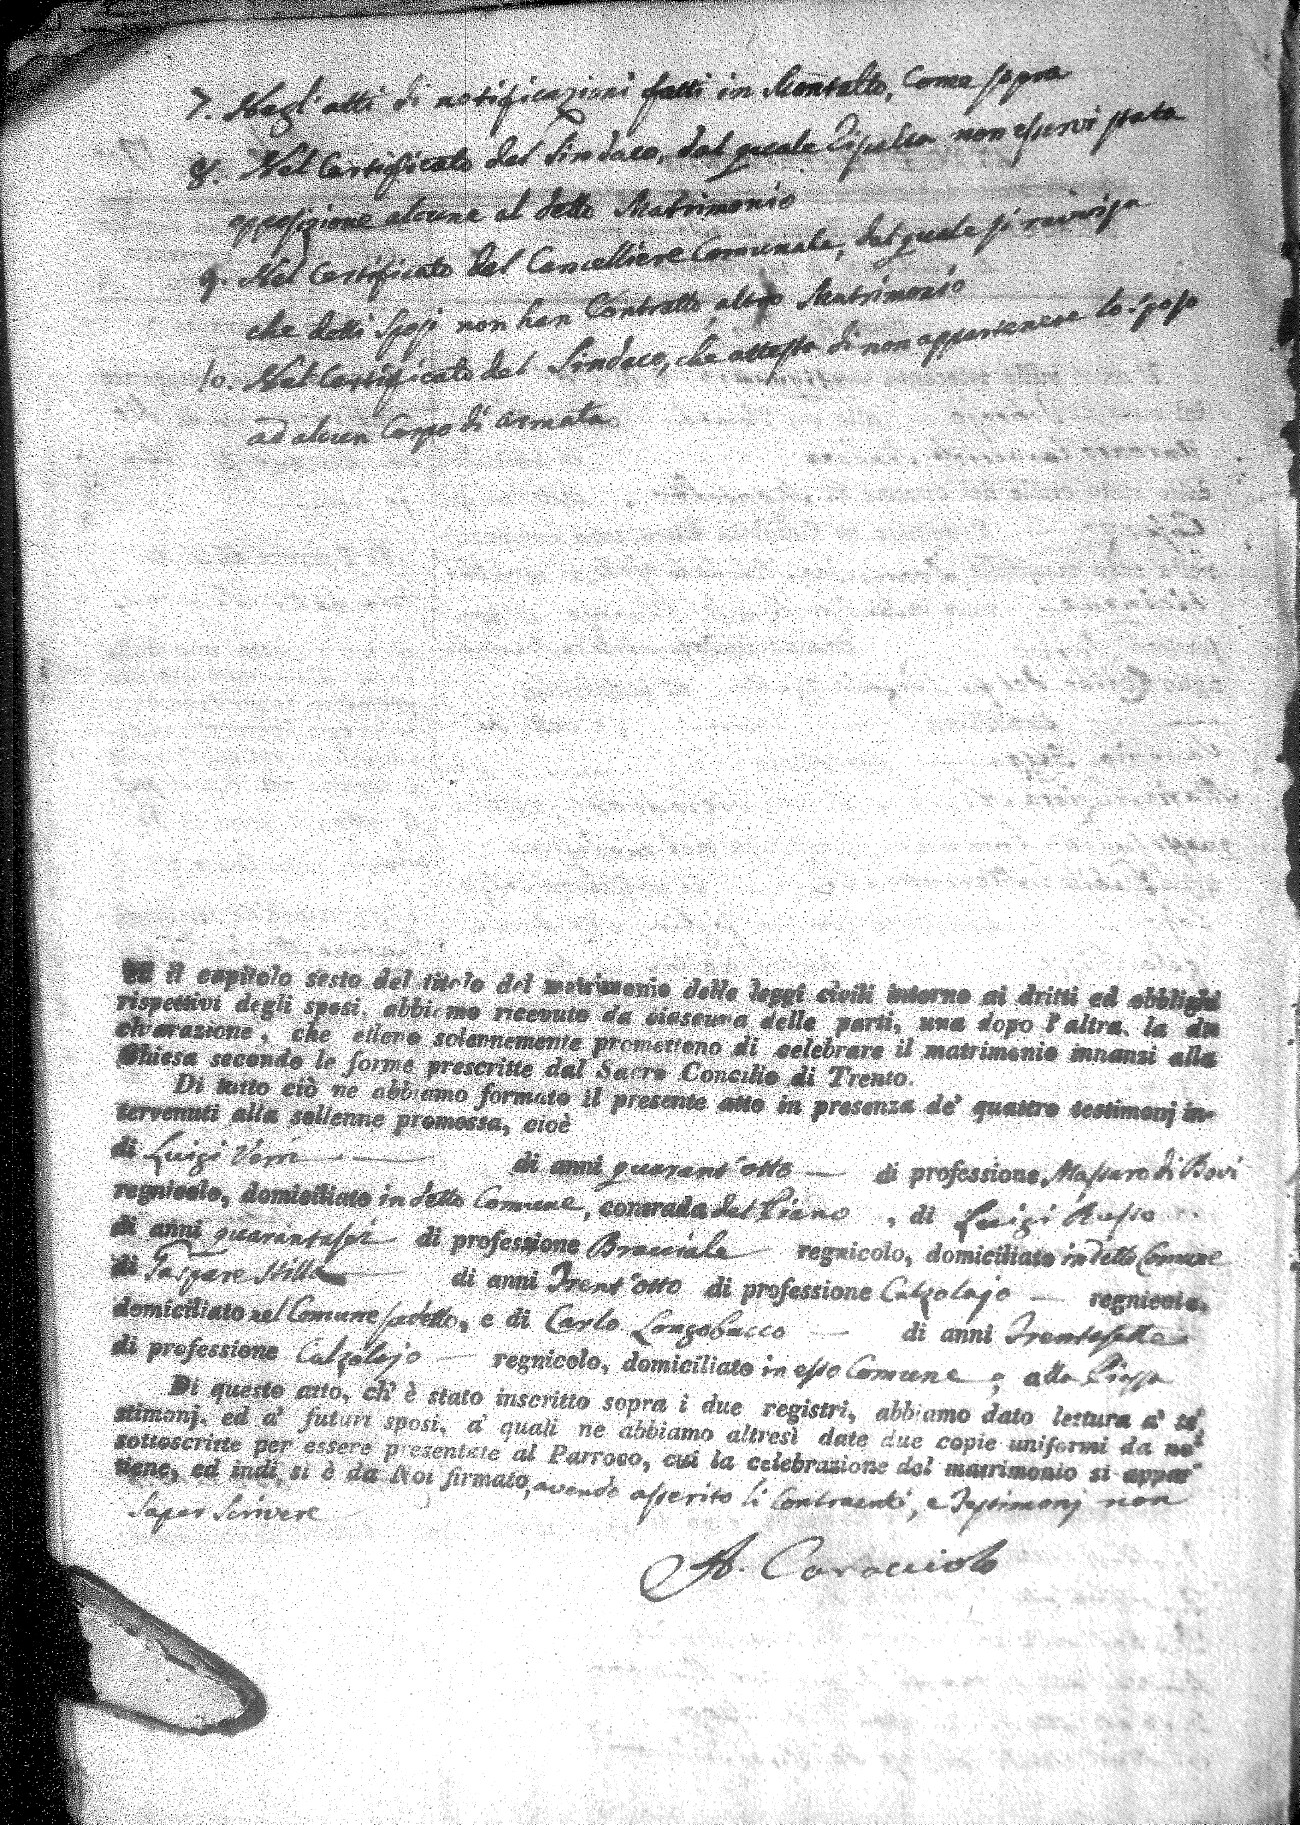 7. Negl'atti di notificazioni fatti in Montalto, come sopra
8. Nel Certificato del Sindaco, dal quale risulta non esservi stata
opposizione alcuna al detto Matrimonio
9. Nel Certificato del Cancelliere Comunale, dal quale si ravvisa
che detti Sposi non han Contratto altro Matrimonio
10. Nel Certificato del Sindaco, che attesta di non appartenere lo sposo
ad alcun Corpo di armata
il capitolo sesto del titolo del matrimonio delle leggi civili intorno ai dritti ed obblighi
rispettivi degli sposi, abbiamo ricevuto da ciascuna delle parti, una dopo l'altra, la di
chiarazione, che elleno solennemente promettono di celebrare il matrimonio innanzi alla
Chiesa secondo le forme prescritte dal Sacro Concilio di Trento.
Di tutto ciò ne abbiamo formato il presente atto in presenza de' quattro testimonj in-
tervenuti alla sollenne promessa, cioè
di Luigi Verri di anni quarant'otto di professione Massaro di Bovi
regnicolo, domiciliato in detto Comune, contrada del Piano, di Luigi Russo
di anni quarantasei di professione Bracciale regnicolo, domiciliato in detto Comune
di Gaspare Stilla di anni Trent'otto di professione Calzolajo regnicolo,
domiciliato nel Comune sudetto, e di Carlo Longobucco di anni Trentasette
di professione Calzolajo regnicolo, domiciliato in esso Comune, alla Piazza
Di questo atto, ch'è stato inscritto sopra i due registri, abbiamo dato lettura a' te
stimonj, ed a' futuri sposi, a' quali ne abbiamo altresì date due copie uniformi da noi
sottoscritte per essere presentate al Parroco, cui la celebrazione del matrimonio si appar
tiene, ed indi si è da Noi firmato, avendo asserito li Contraenti, e Testimonj non
saper scrivere
Caracciolo